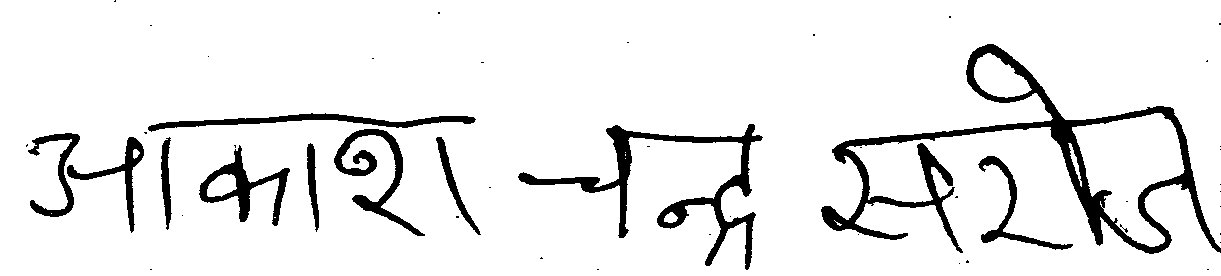 आकाश चन्द्र सरोज